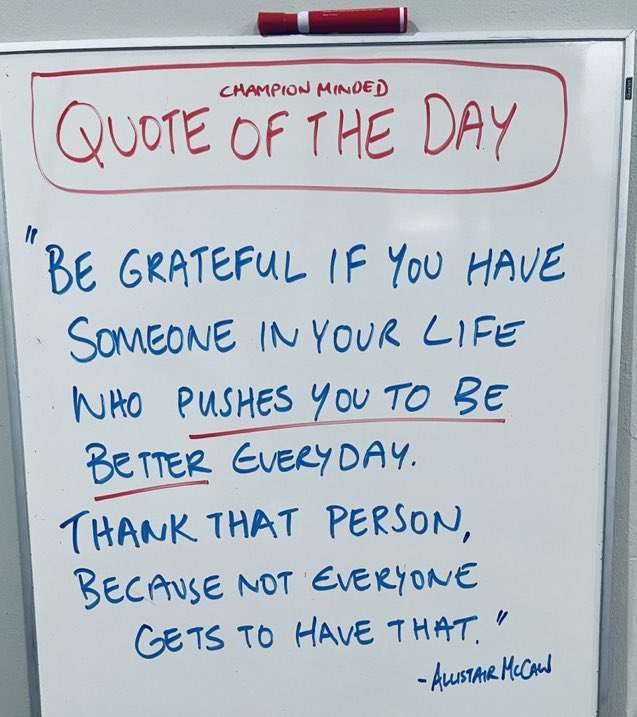 CHAMPION MINDED
QUOTE OF THE DAY
"BE GRATEFUL IF YOU HAVE
SOMEONE IN YOUR LIFE
WHO PUSHES YOU TO BE
BETTER EVERYDAY.
THANK THAT PERSON,
BECAUSE NOT EVERYONE
GETS TO HAVE THAT."
-ALLISTAIR MCCAW